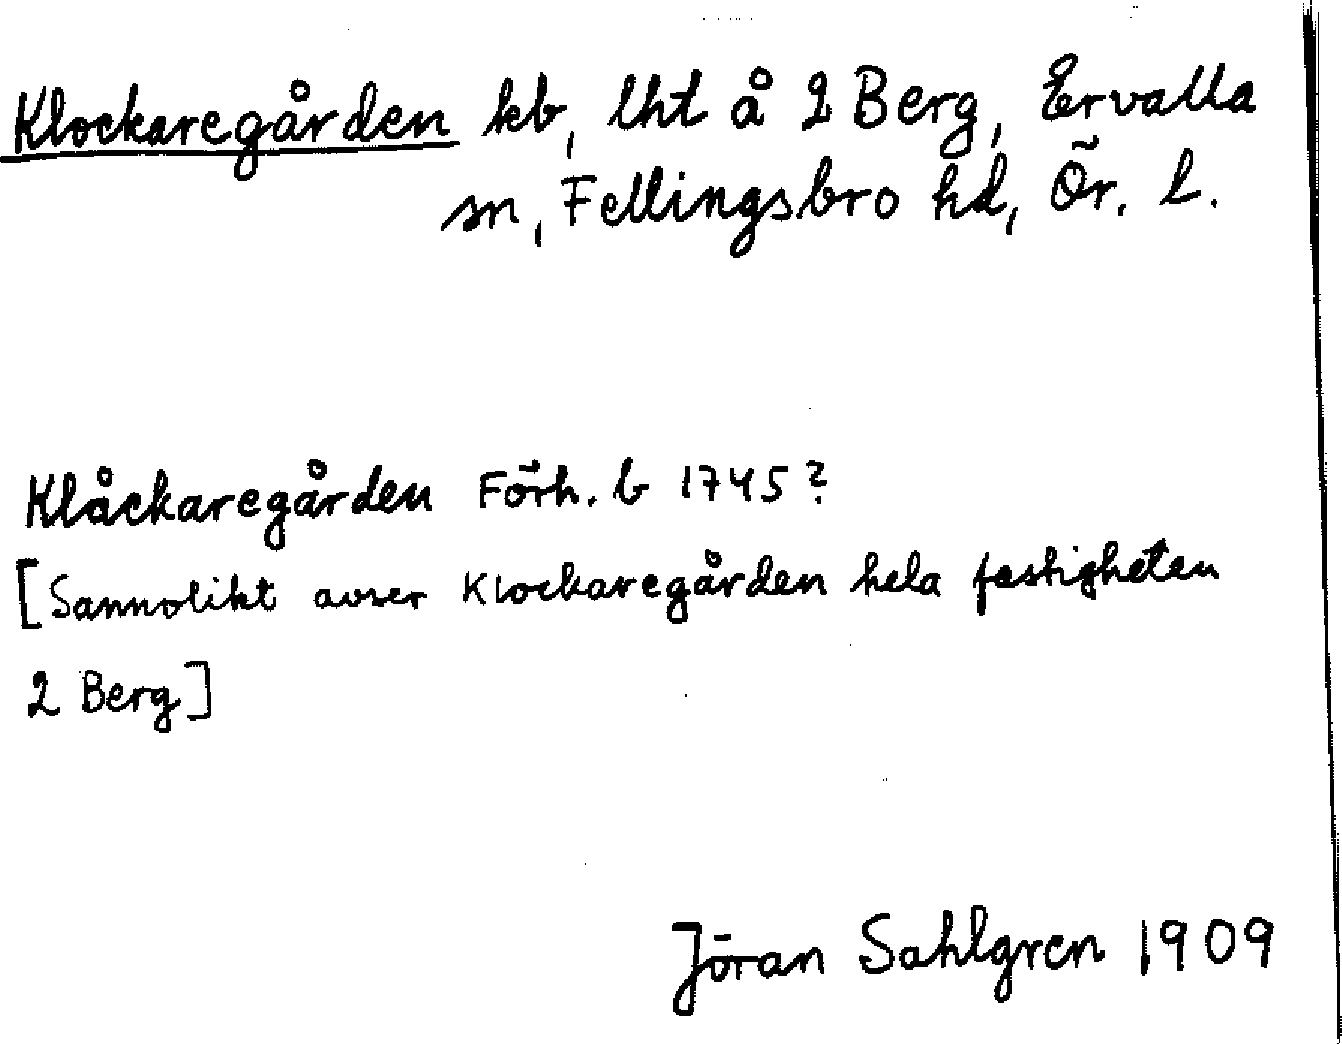 Klockaregården kb, lht å 2 Berg, Ervalla
sn, Fellingsbro hd, Ör. l.
Klåckaregården Förh. b 1745?
[Sannolikt avser Klockaregården hela fastigheten
2 Berg]
Jöran Sahlgren 1909